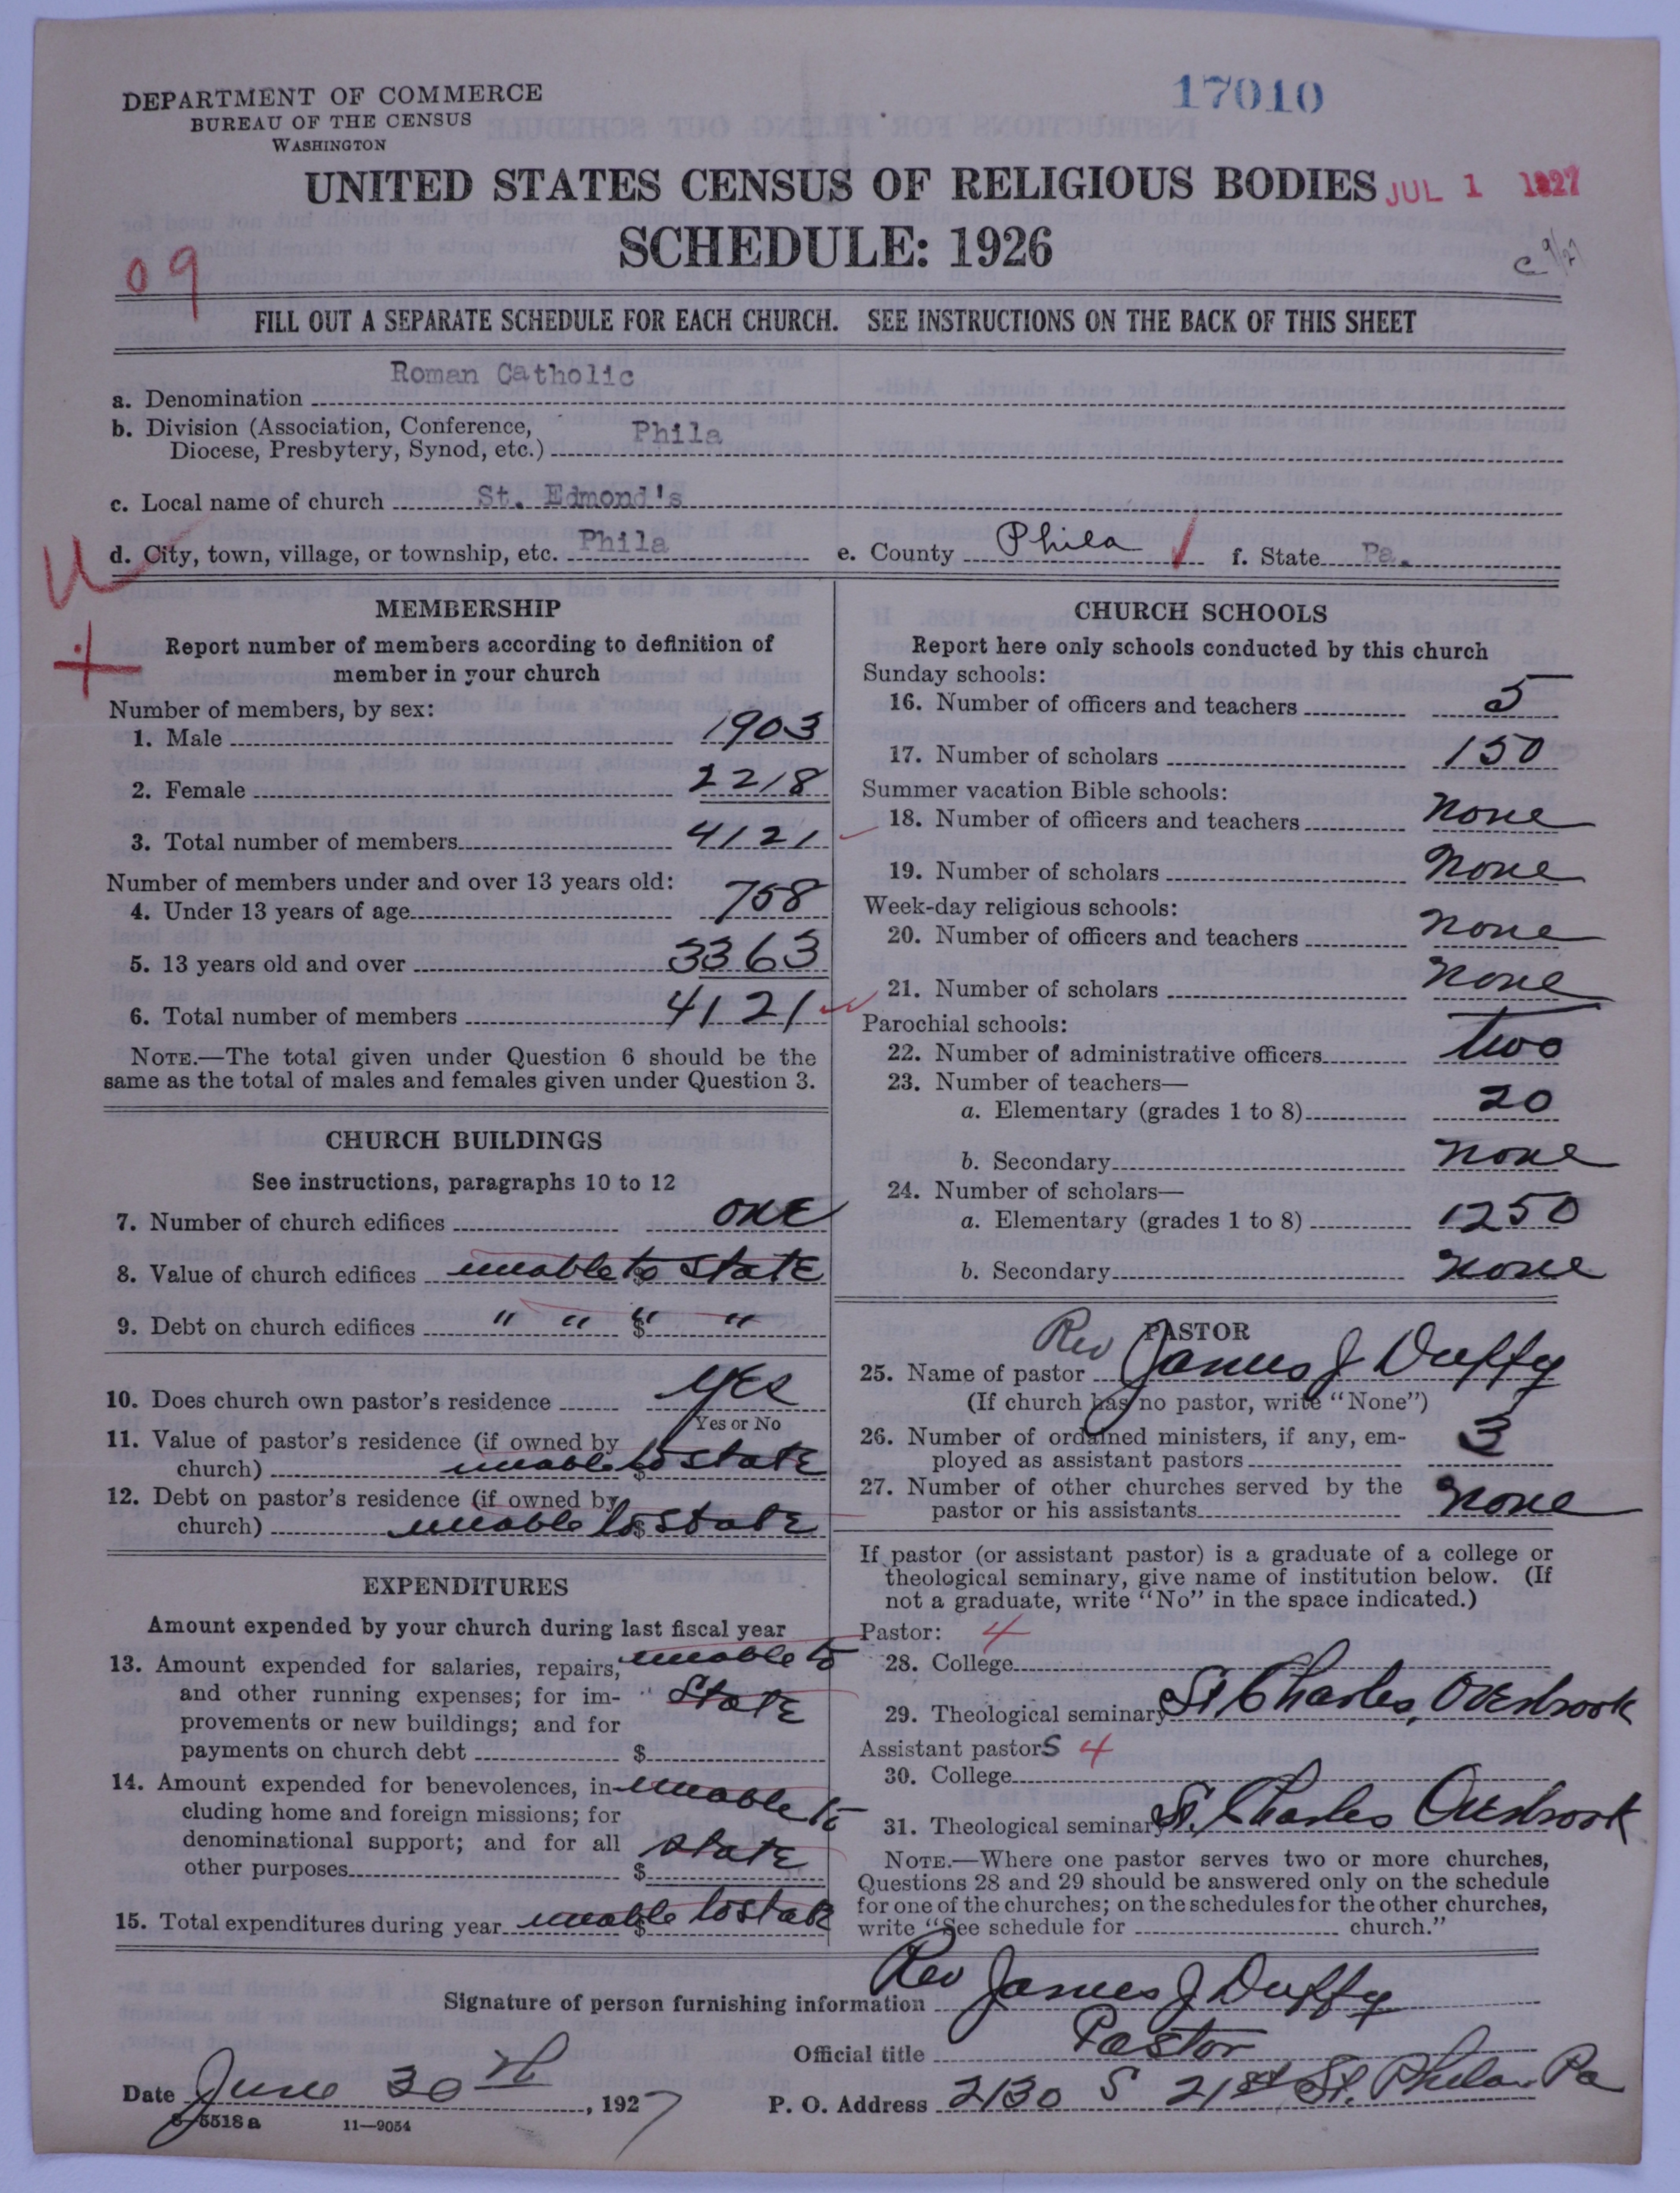 DEPARTMENT OF COMMERCE
BUREAU OF THE CENSUS
WASHINGTON
17010
UNITED STATES CENSUS OF RELIGIOUS BODIES
JUL 1 1927
SCHEDULE: 1926
09
c 9/27
FILL OUT A SEPARATE SCHEDULE FOR EACH CHURCH. SEE INSTRUCTIONS ON THE BACK OF THIS SHEET
a. Denomination Roman Catholic
b. Division (Association, Conference,
Diocese, Presbytery, Synod, etc.) Phila
c. Local name of church St. Edmond's
d. City, town, village, or township, etc. Phila e. County Phila f. State Pa.
MEMBERSHIP
Report number of members according to definition of
member in your church
Number of members, by sex:
1. Male 1903
2. Female 2218
3. Total number of members 4121
Number of members under and over 13 years old:
4. Under 13 years of age 758
5. 13 years old and over 3363
6. Total number of members 4121
NOTE.—The total given under Question 6 should be the
same as the total of males and females given under Question 3.
CHURCH BUILDINGS
See instructions, paragraphs 10 to 12
7. Number of church edifices one
8. Value of church edifices $ unable to state
9. Debt on church edifices $ " " " "
10. Does church own pastor's residence yes
Yes or No
11. Value of pastor's residence (if owned by
church) $ unable to state
12. Debt on pastor's residence (if owned by
church) $ unable to state
EXPENDITURES
Amount expended by your church during last fiscal year
13. Amount expended for salaries, repairs, unable to
and other running expenses; for im- state
provements or new buildings; and for
payments on church debt $
14. Amount expended for benevolences, in- unable to
cluding home and foreign missions; for
denominational support; and for all state
other purposes $
15. Total expenditures during year $ unable to state
CHURCH SCHOOLS
Report here only schools conducted by this church
Sunday schools:
16. Number of officers and teachers 5
17. Number of scholars 150
Summer vacation Bible schools:
18. Number of officers and teachers none
19. Number of scholars none
Week-day religious schools:
20. Number of officers and teachers none
21. Number of scholars none
Parochial schools:
22. Number of administrative officers two
23. Number of teachers—
a. Elementary (grades 1 to 8) 20
b. Secondary none
24. Number of scholars—
a. Elementary (grades 1 to 8) 1250
b. Secondary none
PASTOR
25. Name of pastor Rev James J Duffy
(If church has no pastor, write "None")
26. Number of ordained ministers, if any, em-
ployed as assistant pastors 3
27. Number of other churches served by the
pastor or his assistants none
If pastor (or assistant pastor) is a graduate of a college or
theological seminary, give name of institution below. (If
not a graduate, write "No" in the space indicated.)
Pastor: 4
28. College
29. Theological seminary St. Charles, Overbrook
Assistant pastors 4
30. College
31. Theological seminary St. Charles Overbrook
NOTE.—Where one pastor serves two or more churches,
Questions 28 and 29 should be answered only on the schedule
for one of the churches; on the schedules for the other churches,
write "See schedule for church."
Signature of person furnishing information Rev James J Duffy
Official title Pastor
Date June 30th, 1927 P. O. Address 2130 S 21st St. Phila. Pa
8-5518a 11—9054